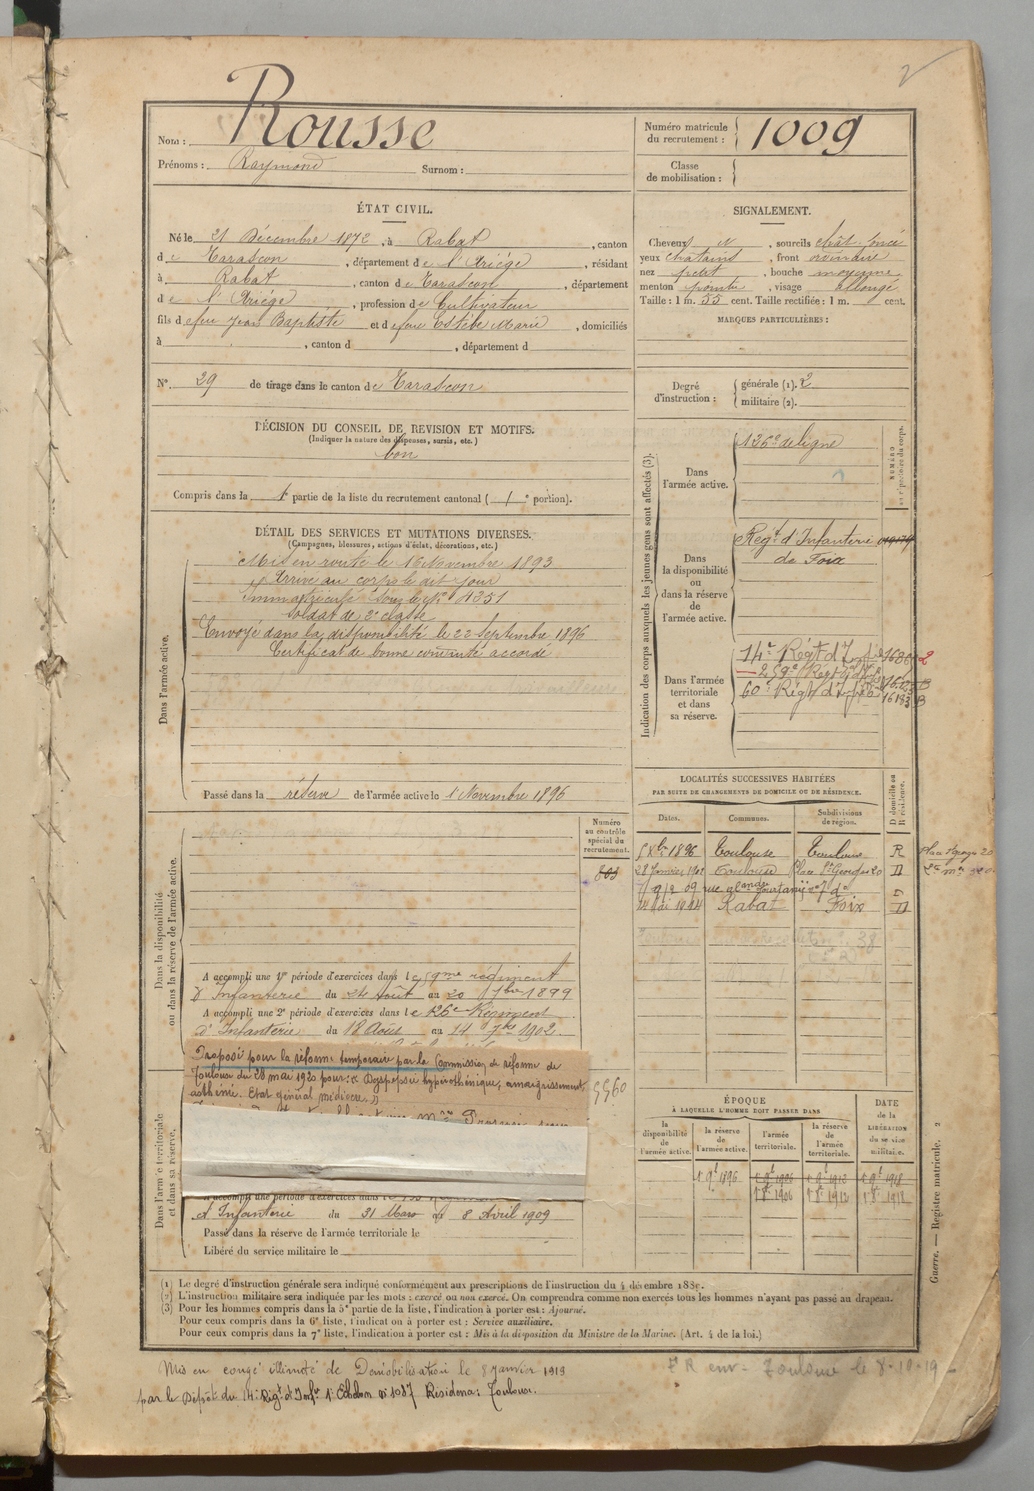 2
Nom : Rousse
Prénoms : Raymond Surnom :
Numéro matricule du recrutement : 1009
Classe de mobilisation :
ÉTAT CIVIL.
Né le 21 Décembre 1872, à Rabat, canton
de Tarascon, département de l'Ariège, résidant
à Rabat, canton de Tarascon, département
de l'Ariège, profession de Cultivateur
fils de feu Jean Baptiste et de feue Estèbe Marie, domiciliés
à , canton d , département d
N° 29 de tirage dans le canton de Tarascon
DÉCISION DU CONSEIL DE REVISION ET MOTIFS.
(Indiquer la nature des dispenses, sursis, etc.)
bon
Compris dans la 1e partie de la liste du recrutement cantonal ( 1e portion).
DÉTAIL DES SERVICES ET MUTATIONS DIVERSES.
(Campagnes, blessures, actions d'éclat, décorations, etc.)
Dans l'armée active.
Mis en route le 16 Novembre 1893
Arrivé au corps le dit jour
Immatriculé sous le N° 4351
Soldat de 2e classe
Envoyé dans la disponibilité le 22 Septembre 1896
Certificat de bonne conduite accordé
Passé dans la réserve de l'armée active le 1 Novembre 1896
Dans la disponibilité ou dans la réserve de l'armée active.
Numéro au contrôle spécial du recrutement.
803
A accompli une 1re période d'exercices dans le 59me régiment
d'Infanterie du 24 Août au 20 7bre 1899
A accompli une 2e période d'exercices dans le 126e Régiment
d'Infanterie du 18 Août au 14 7bre 1902.
Dans l'armée territoriale et dans sa réserve.
Proposé pour la réforme temporaire par la Commission de réforme de
Toulouse du 28 mai 1920 pour : « Dyspepsie hyposthénique, amaigrissement
asthénie. Etat général médiocre. »
5560
A accompli une période d'exercices dans le
d'Infanterie du 31 Mars au 8 Avril 1909
Passé dans la réserve de l'armée territoriale le
Libéré du service militaire le
SIGNALEMENT.
Cheveux et , sourcils chât. foncé
yeux chatains , front ordinaire
nez petit , bouche moyenne
menton pointu , visage allongé
Taille : 1 m. 55 cent. Taille rectifiée : 1 m. cent.
MARQUES PARTICULIÈRES :
Degré d'instruction : générale (1). 2
militaire (2).
Indication des corps auxquels les jeunes gens sont affectés (3).
NUMÉRO au répertoire du corps.
Dans l'armée active.
126e de ligne
Dans la disponibilité ou dans la réserve de l'armée active.
Régt. d'Infanterie
de Foix
Dans l'armée territoriale et dans sa réserve.
14e Régt d'Infie
259e Régt d'Infie
60e Régt d'Infie
LOCALITÉS SUCCESSIVES HABITÉES
PAR SUITE DE CHANGEMENTS DE DOMICILE OU DE RÉSIDENCE.
D domicile ou R résidence.
Dates. Communes. Subdivisions de région.
Xbre 1896 Toulouse Toulouse R Place St Georges 20
28 Janvier 1902 Toulouse Place St Georges 20 D
14 Mai 1914 Rabat Foix D
ÉPOQUE
À LAQUELLE L'HOMME DOIT PASSER DANS
DATE de la LIBÉRATION du service militaire.
la disponibilité de l'armée active. la réserve de l'armée active. l'armée territoriale. la réserve de l'armée territoriale.
(1) Le degré d'instruction générale sera indiqué conformément aux prescriptions de l'instruction du 4 décembre 1889.
(2) L'instruction militaire sera indiquée par les mots : exercé ou non exercé. On comprendra comme non exercés tous les hommes n'ayant pas passé au drapeau.
(3) Pour les hommes compris dans la 5e partie de la liste, l'indication à porter est : Ajourné.
Pour ceux compris dans la 6e liste, l'indication à porter est : Service auxiliaire.
Pour ceux compris dans la 7e liste, l'indication à porter est : Mis à la disposition du Ministre de la Marine. (Art. 4 de la loi.)
Guerre. — Registre matricule. 2
Mis en congé illimité de Démobilisation le 8 Janvier 1919
par le Dépôt du 14e Régt d'Infie 1e Echelon n° 1087 Résidence : Toulouse.
env. Toulouse le 8-10-19